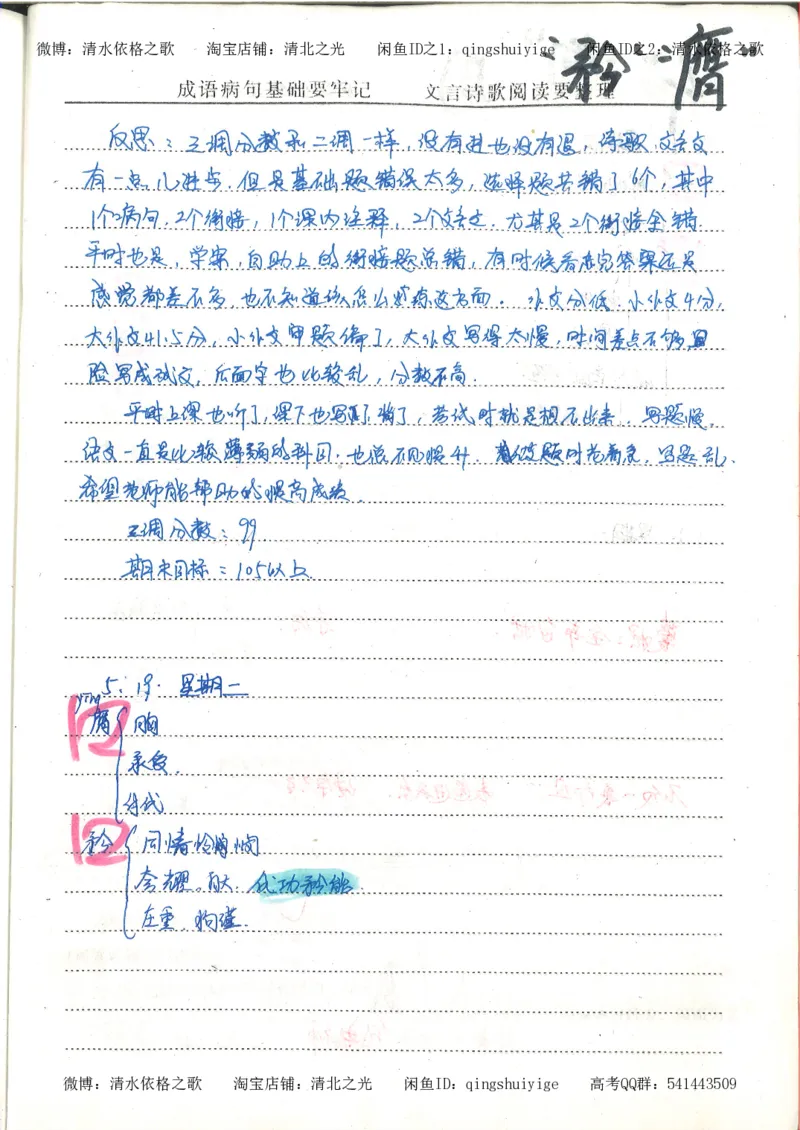 微博：清水依格之歌 淘宝店铺：清北之光 闲鱼ID之1：qingshuiyige 闲鱼ID之2：清水依格之歌
矜 膺
成语病句基础要牢记 文言诗歌阅读要整理
反思：三调分数和二调一样，没有进也没有退，诗歌.文言文
有一点儿进步.但是基础题错误太多，选择题共错了6个，其中
1个病句.2个衔接，1个课内注释，2个文言文.尤其是2个衔接全错
平时也是，学案，自助上的衔接题总错，有时候看完答案还是
感觉都差不多，也不知道该怎么训练这方面.作文分低.小作文4分，
大作文41.5分，小作文审题偏了，大作文写得太慢，时间差点不够
险写成残文，后面字也比较乱，分数不高.
平时上课也听了，课下也写了背了，考试时就是想不出来.写题慢，
语文一直是比较薄弱的科目.也总不见提升.做题时总着急，写题乱.
希望老师能帮助的提高成绩.
三调分数：99
期末目标：105以上.
5.19.星期二
yīng
膺 胸
承受.
讨伐
矜 同情怜悯
夸耀。自大.伐功矜能.
庄重 拘谨.
微博：清水依格之歌 淘宝店铺：清北之光 闲鱼ID：qingshuiyige 高考QQ群：541443509